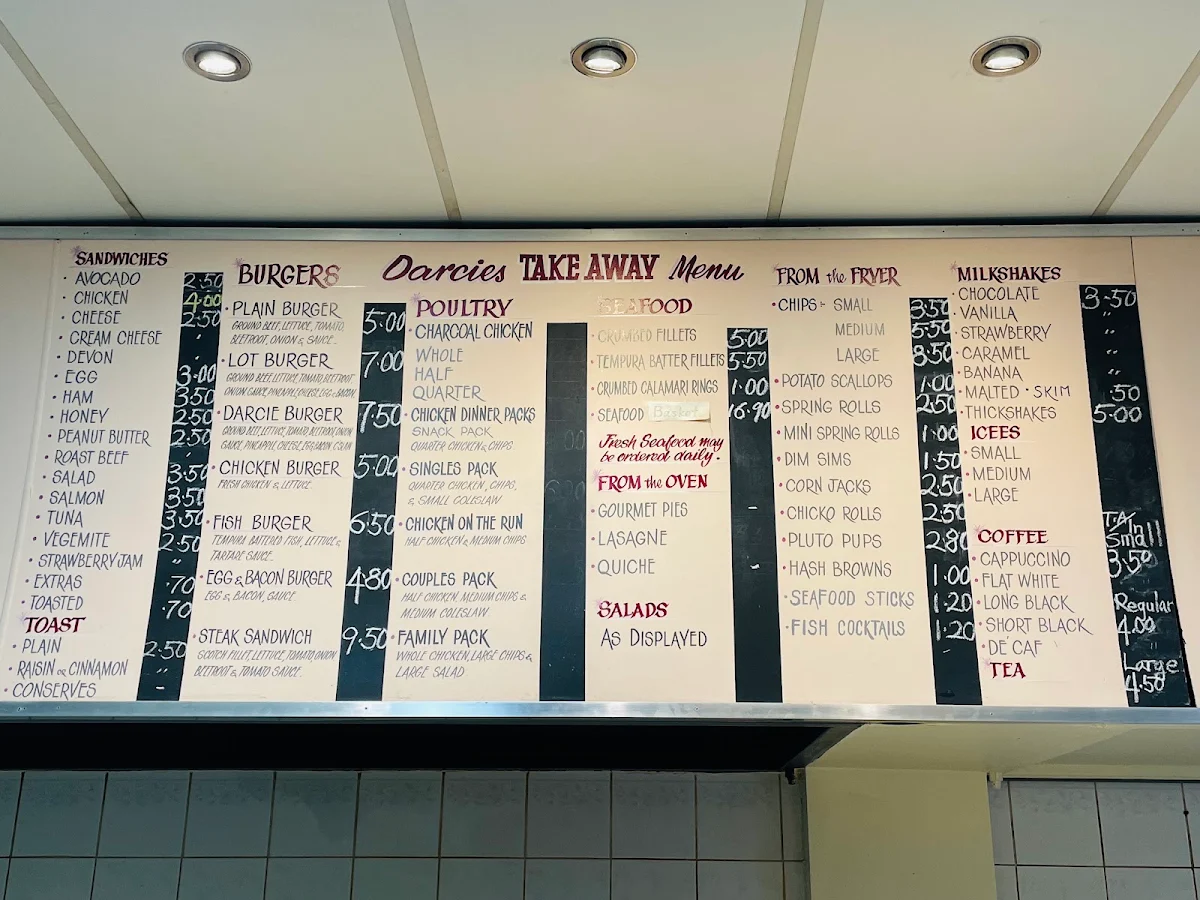 Darcies TAKE AWAY Menu
SANDWICHES
• AVOCADO 2·50
• CHICKEN 4·00
• CHEESE 2·50
• CREAM CHEESE "
• DEVON "
• EGG 3·00
• HAM 3·50
• HONEY 2·50
• PEANUT BUTTER 2·50
• ROAST BEEF
• SALAD 3·50
• SALMON 3·50
• TUNA 3·50
• VEGEMITE 2·50
• STRAWBERRY JAM "
• EXTRAS ·70
• TOASTED ·70
TOAST
• PLAIN 2·50
• RAISIN OR CINNAMON "
• CONSERVES
BURGERS
• PLAIN BURGER 5·00
GROUND BEEF, LETTUCE, TOMATO,
BEETROOT, ONION & SAUCE.
• LOT BURGER 7·00
GROUND BEEF, LETTUCE, TOMATO, BEETROOT
ONION, SAUCE, PINEAPPLE, CHEESE, EGG & BACON
• DARCIE BURGER 7·50
GROUND BEEF, LETTUCE, TOMATO, BEETROOT, ONION
SAUCE, PINEAPPLE, CHEESE, EGG, BACON
• CHICKEN BURGER 5·00
FRESH CHICKEN & LETTUCE.
• FISH BURGER 6·50
TEMPURA BATTERED FISH, LETTUCE &
TARTARE SAUCE.
• EGG & BACON BURGER 4·80
EGG & BACON, SAUCE.
• STEAK SANDWICH 9·50
SCOTCH FILLET, LETTUCE, TOMATO, ONION
BEETROOT & TOMATO SAUCE.
POULTRY
• CHARCOAL CHICKEN
WHOLE
HALF
QUARTER
• CHICKEN DINNER PACKS
SNACK PACK
QUARTER CHICKEN & CHIPS
• SINGLES PACK
QUARTER CHICKEN, CHIPS,
& SMALL COLESLAW
• CHICKEN ON THE RUN
HALF CHICKEN & MEDIUM CHIPS
• COUPLES PACK
HALF CHICKEN, MEDIUM CHIPS &
MEDIUM COLESLAW
• FAMILY PACK
WHOLE CHICKEN, LARGE CHIPS &
LARGE SALAD
SEAFOOD
• CRUMBED FILLETS 5·00
• TEMPURA BATTER FILLETS 5·50
• CRUMBED CALAMARI RINGS 1·00
• SEAFOOD Basket 16·90
Fresh Seafood may
be ordered daily.
FROM the OVEN
• GOURMET PIES
• LASAGNE
• QUICHE
SALADS
AS DISPLAYED
FROM the FRYER
• CHIPS - SMALL 3·50
MEDIUM 5·50
LARGE 8·50
• POTATO SCALLOPS 1·00
• SPRING ROLLS 2·50
• MINI SPRING ROLLS 1·00
• DIM SIMS 1·50
• CORN JACKS 2·50
• CHICKO ROLLS 2·50
• PLUTO PUPS 2·80
• HASH BROWNS 1·00
• SEAFOOD STICKS 1·20
• FISH COCKTAILS 1·20
MILKSHAKES
• CHOCOLATE 3·50
• VANILLA "
• STRAWBERRY "
• CARAMEL "
• BANANA "
• MALTED • SKIM ·50
• THICKSHAKES 5·00
ICEES
• SMALL
• MEDIUM
• LARGE
COFFEE
• CAPPUCCINO
• FLAT WHITE
• LONG BLACK
• SHORT BLACK
• DE'CAF
TEA
Small
3·50
Regular
4·00
Large
4·50